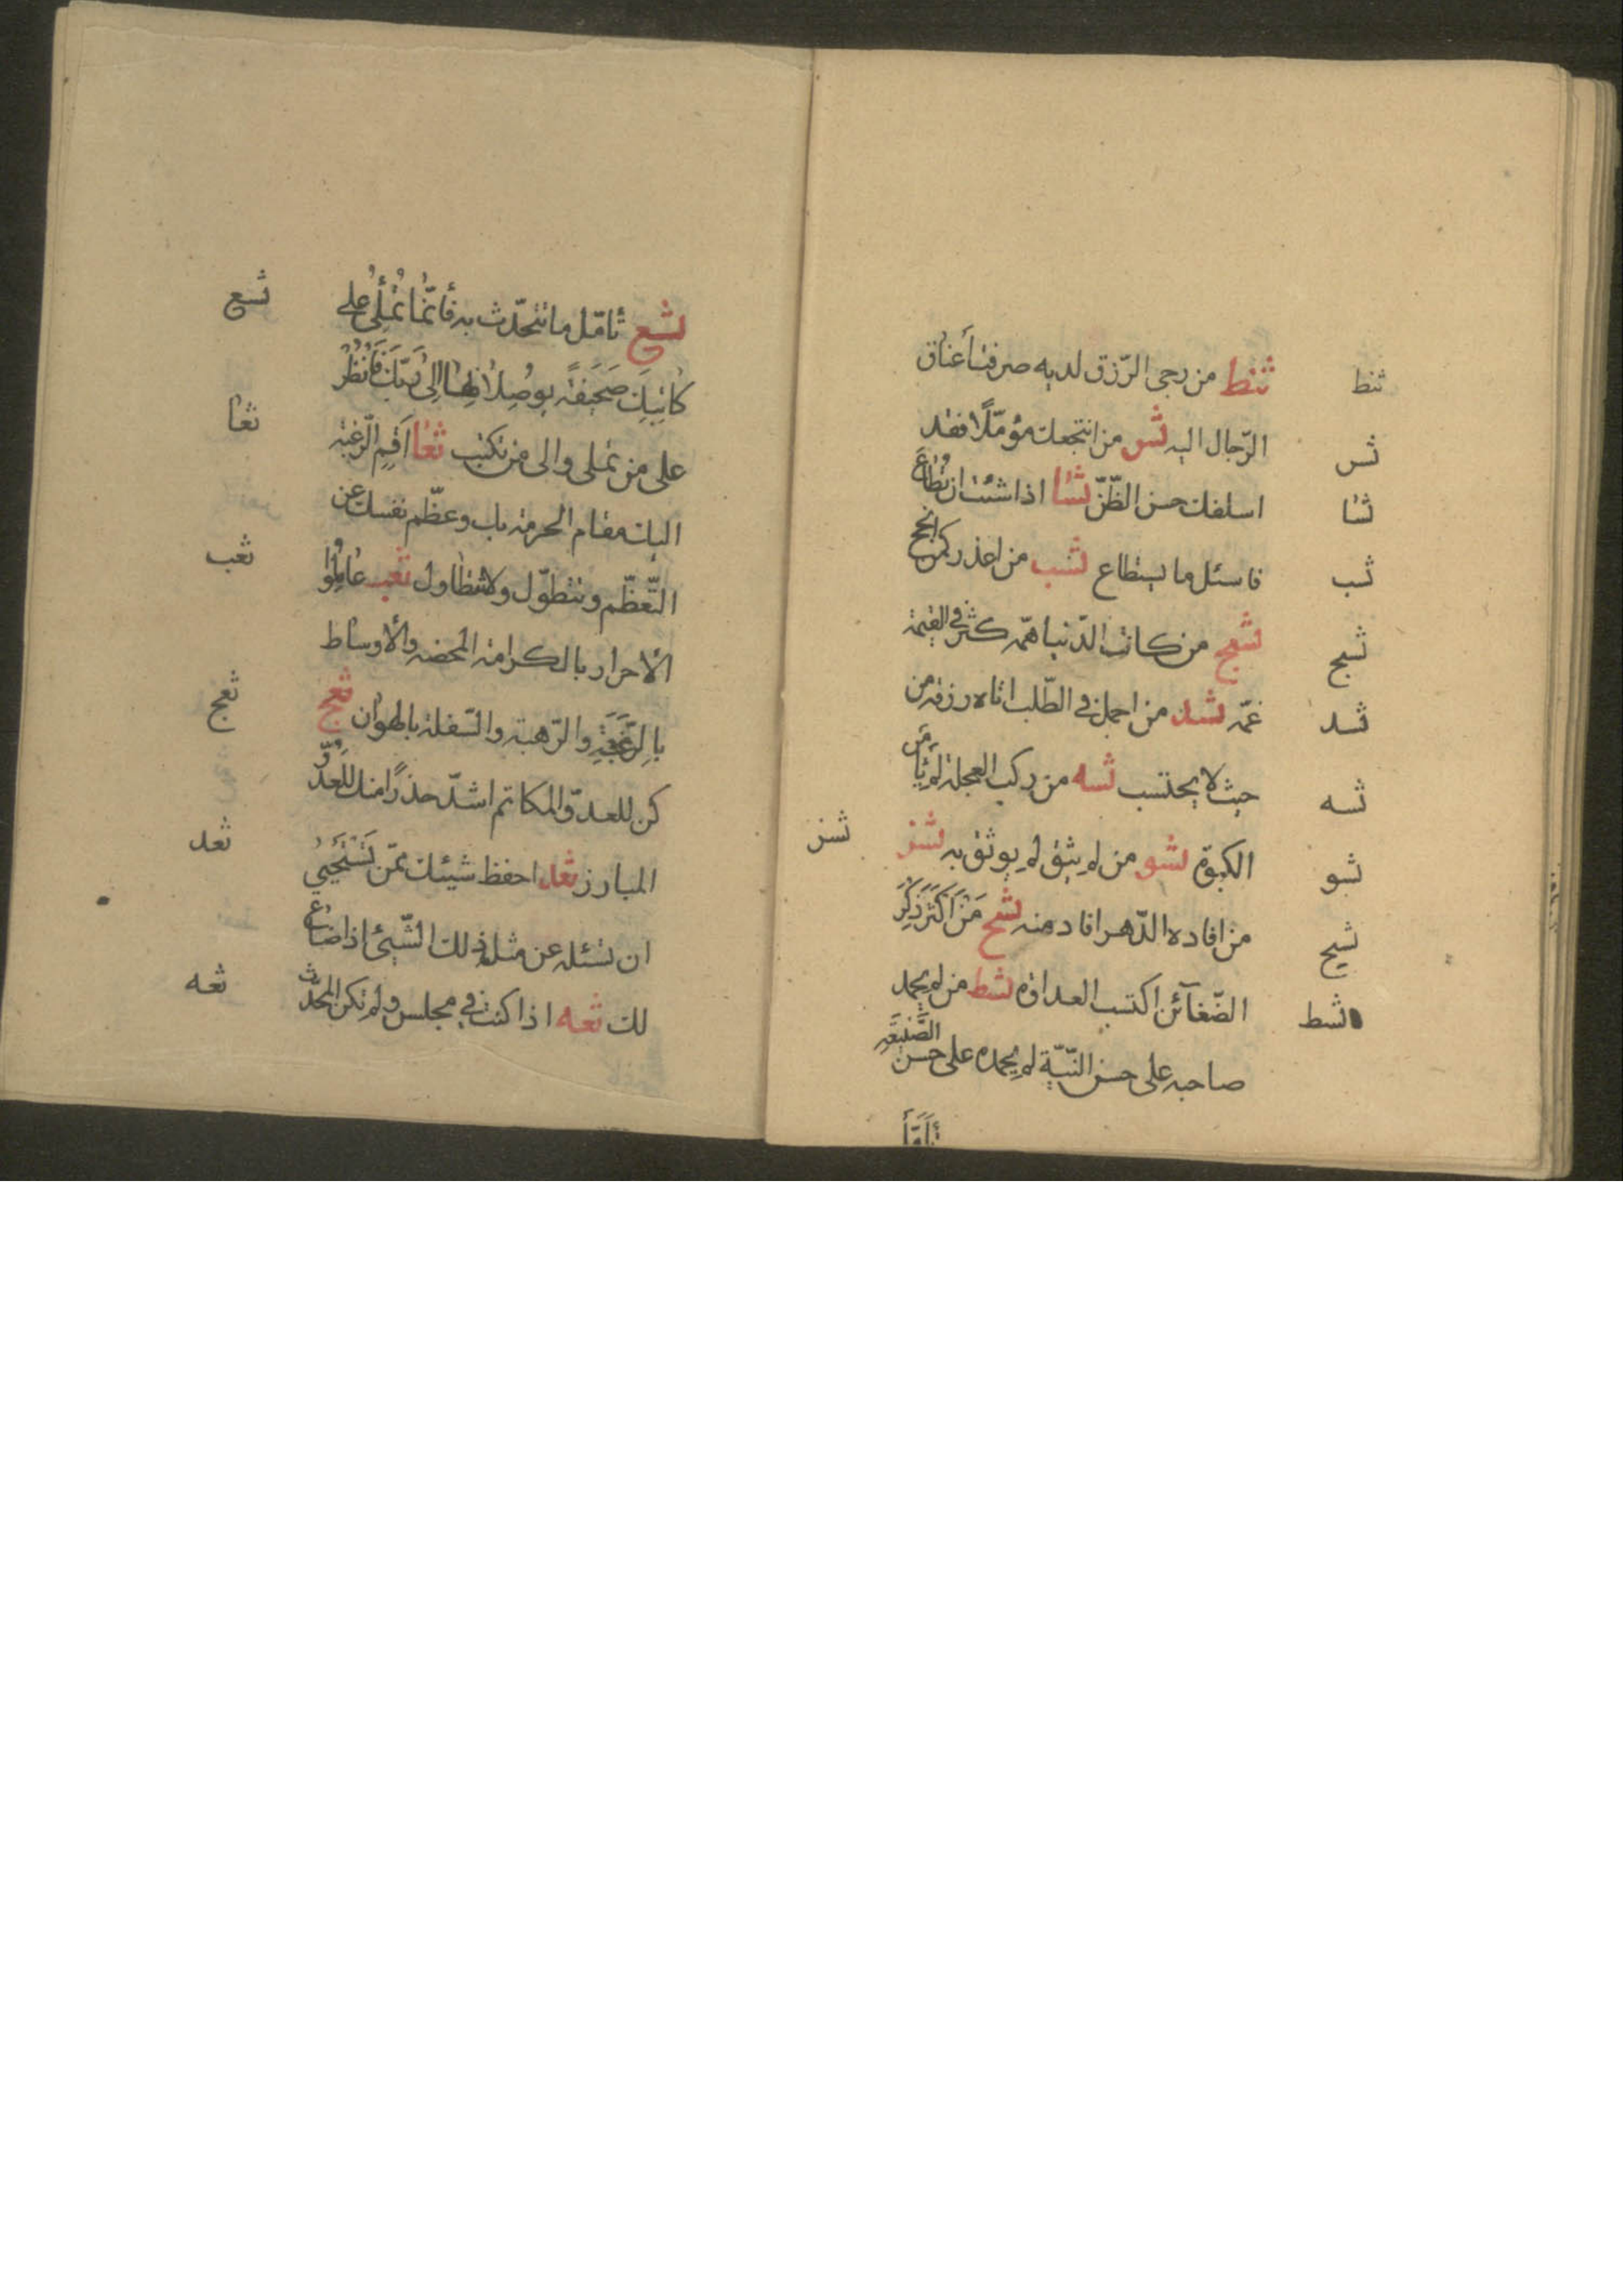 ثنط من رجى الرّزق لديه صرفت أعناق
ثنط
الرّجال اليه ثس من انتجعك مؤمّلًا فقد
ثس
اسلفك حسن الظّنّ ثسا اذا شئت ان تُطاعَ
ثسا
فاسئل ما يستطاع ثسب من اعذر كمن انجح
ثسب
ثسج من كانت الدّنيا همّه كثر في القيمة
ثسج
غمّه ثسد من اجمل في الطّلب اتاه رزقه من
ثسد
حيث لا يحتسب ثسه من ركب العجلة لم يأمن
ثسه
الكبوة ثسو من لم يثق لم يوثق به ثسز
ثسو
ثسز
من افاده الدّهر افاد منه ثسح مَنْ اَكْثَرَ ذِكْرَ
ثسح
الضّغآئن اكتسب العداوة ثسط من لم يحمد
ثسط
صاحبه على حسن النّيّة لم يحمده على حسن الصَّنيعَةِ
تَأَمَّل
ثسع تأمّل ما تتحدّث به فأنّما تُمْلِي على
ثسع
كاتِبَيْكَ صَحيفَةً يوصِلانِها اِلى رَبِّكَ فَانْظُرْ
على من تملى والى من تكتب ثعا اَقِمِ الرّغبة
ثعا
اليك مقام الحرمة بك وعظّم نفسك عن
التّعظّم وتتطوّل ولا تتطاول ثعب عامِلُوا
ثعب
الأحرار بالكرامة المحضة والأوساط
بِالرَّغْبَةِ والرّهبة والسّفلة بالهوان ثعج
ثعج
كن للعدوّ المكاتم اشدّ حذرًا منك لِلْعَدُوِّ
المبارز ثعد احفظ شيئك ممّن تَسْتَحْيِي
ثعد
ان تسئله عن مثل ذلك الشّيئ اذا ضاع
لك ثعه اذا كنت في مجلس ولم تكن المحدّث
ثعه